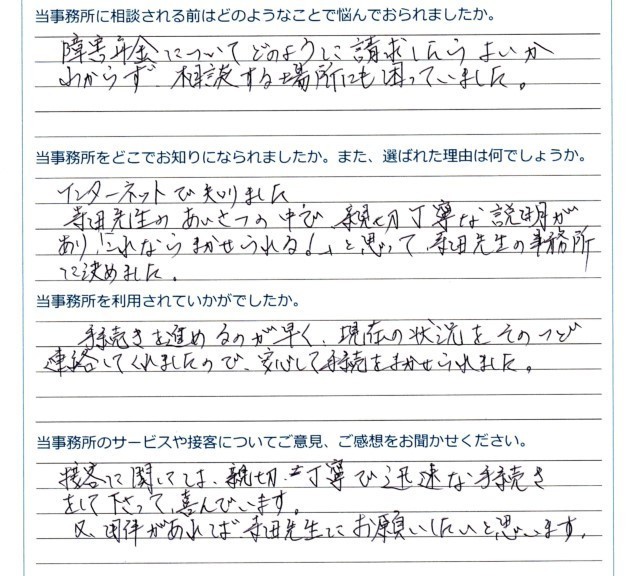 当事務所に相談される前はどのようなことで悩んでおられましたか。
障害年金についてどのように請求したらよいか
わからず、相談する場所にも困っていました。
当事務所をどこでお知りになられましたか。また、選ばれた理由は何でしょうか。
インターネットで知りました
寺田先生のあいさつの中で、親切丁寧な説明が
あり「これならまかせられる!」と思って、寺田先生の事務所
に決めました。
当事務所を利用されていかがでしたか。
手続きを進めるのが早く、現在の状況をそのつど
連絡してくれましたので、安心して手続をまかせられました。
当事務所のサービスや接客についてご意見、ご感想をお聞かせください。
接客に関しては、親切・丁寧で迅速な手続き
をして下さって、喜んでいます。
又、用件があれば寺田先生にお願いしたいと思います。